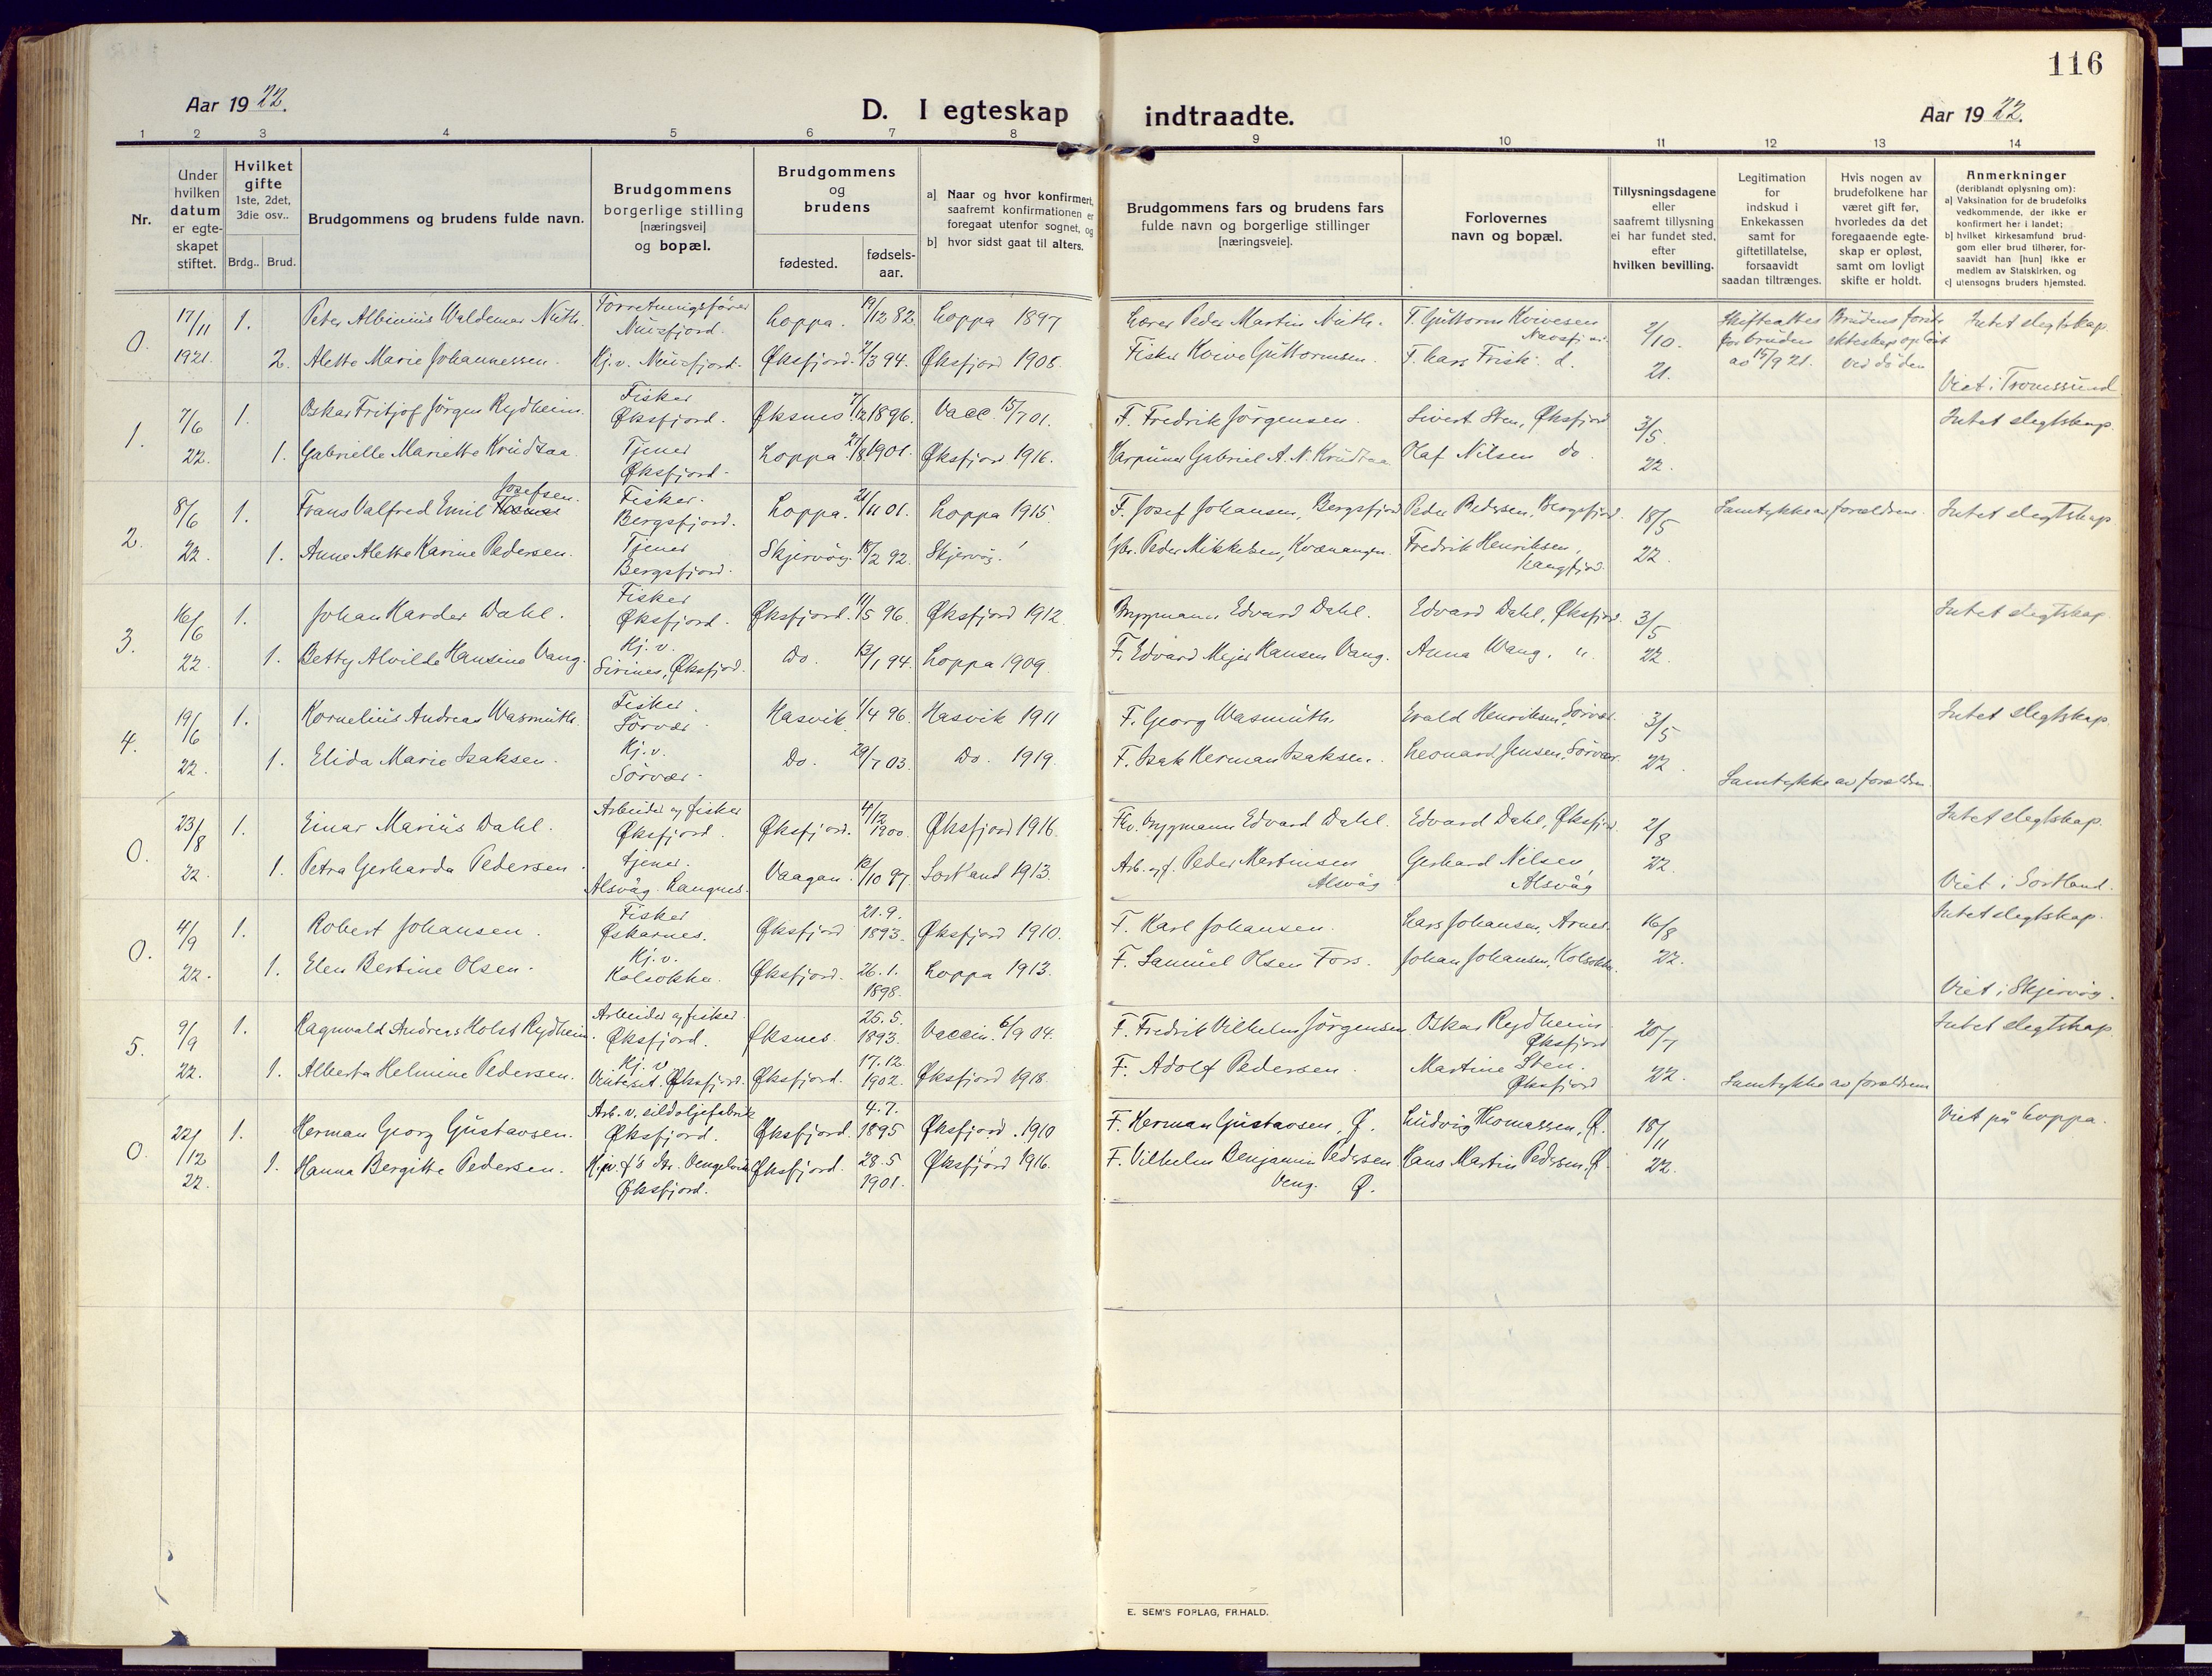 116
Aar 1922.
D. I egteskap indtraadte.
Aar 1922.
1 2 3 4 5 6 7 8 9 10 11 12 13 14
Nr.
Under hvilken datum er egteskapet stiftet.
Hvilket gifte 1ste, 2det, 3die osv..
Brdg.. Brud.
Brudgommens og brudens fulde navn.
Brudgommens borgerlige stilling [næringsvei] og bopæl.
Brudgommens og brudens
fødested.
fødselsaar.
a] Naar og hvor konfirmert, saafremt konfirmationen er foregaat utenfor sognet, og
b] hvor sidst gaat til alters.
Brudgommens fars og brudens fars fulde navn og borgerlige stillinger [næringsveie].
Forlovernes navn og bopæl.
Tillysningsdagene eller saafremt tillysning ei har fundet sted, efter hvilken bevilling.
Legitimation for indskud i Enkekassen samt for giftetillatelse, forsaavidt saadan tiltrænges.
Hvis nogen av brudefolkene har været gift før, hvorledes da det foregaaende egteskap er opløst, samt om lovligt skifte er holdt.
Anmerkninger (deriblandt oplysning om):
a] Vaksination for de brudefolks vedkommende, der ikke er konfirmert her i landet;
b] hvilket kirkesamfund brudgom eller brud tilhører, forsaavidt han [hun] ikke er medlem av Statskirken, og
c] utensogns bruders hjemsted.
0. 17/11 1921. 1. Peter Albinius Waldemar Nuth. Forretningsfører Nuvsfjord. Loppa. 19/12 82 Loppa 1897 Lærer Peder Martin Nuth. T. Guttorm Kvivesen 2/10. 21. Skifteattest for bruden ao 15/9 21. Brudens første ekteskap opløst ved døden Intet slegtskap.
2. Alette Marie Johannessen. Kj.v. Nuvsfjord. Øksfjord. /3 94. Øksfjord 1908. Fisker Kvive Guttormsen. T. Lars Frisk. d. Viet i Tromsøsund
1. 7/6 22. 1. Oskar Fritjof Jørgen Rydheim. Fisker Øksfjord. Øksnes 7/12 1896. Vacc. 15/7 01. F. Fredrik Jørgensen. Sivert Sten, Øksfjord 3/5 22. Intet slegtskap.
1. Gabrielle Mariette Krudtaa. Tjener Øksfjord. Loppa. 21/8 1901. Øksfjord 1916. Harpuner Gabriel A. N. Krudtaa. Olaf Nilsen do.
2. 8/6 22. 1. Frans Valfred Emil Josefsen. Fisker. Bergsfjord. Loppa. 21/11 01. Loppa 1915. F. Josef Johansen, Bergsfjord Peder Pedersen, Bergsfjord. 18/5 22 Samtykke av forældrene. Intet slegtskap
1. Anne Alette Karine Pedersen. Tjener Bergsfjord. Skjervøy. 18/2 92. Skjervøy. Gbr. Peder Mikkelsen, Kvænangen. Fredrik Henriksen, Langfjord.
3. 16/6 22. 1. Johan Harder Dahl. Fisker Øksfjord. Øksfjord. 11/5 96. Øksfjord 1912. Bryggmann Edvard Dahl. Edvard Dahl, Øksfjord. 3/5 22. Intet slegtskap.
1. Betty Alvilde Hansine Vang. Kj.v. Sirines, Øksfjord. Do. 13/1 94. Loppa 1909. F. Edvard Mejer Hansen Vang. Anna Wang. "
4. 19/6 22. 1. Kornelius Andreas Wasmuth. Fisker. Sørvær. Hasvik. 1/4 96. Hasvik 1911 F. Georg Wasmuth. Evald Henriksen, Sørvær. 3/5 22. Intet slegtskap.
1. Elida Marie Isaksen. Kj.v. Sørvær. Do. 29/7 03. Do. 1919. F. Isak Herman Isaksen. Leonard Jensen, Sørvær. Samtykke av forældrene
0. 23/8 22. 1. Einar Marius Dahl. Arbeider og fisker Øksfjord. Øksfjord. 4/12 1900. Øksfjord 1916. Fhv. Bryggmann Edvard Dahl. Edvard Dahl, Øksfjord. 2/8 22. Intet slegtskap.
1. Petra Gerharda Pedersen. tjener. Alsvåg. Langnes. Vaagan. 12/10 97. Sortland 1913. Arb. og f. Peder Martinsen Alsvåg Gerhard Nilsen, Alsvåg Viet i Sortland.
0. 4/9 22. 1. Robert Johansen. Fisker Øskarnes. Øksfjord 21.9. 1893. Øksfjord 1910. F. Karl Johansen. Lars Johansen, Arnes. 16/8 22. Intet slegtskap.
1. Elen Bertine Olsen. Kj.v. Kolsokka. Øksfjord. 26.1. 1898. Loppa 1913. F. Samuel Olsen Fors. Johan Johansen, Kolsokka. Viet i Skjervøy.
5. 9/9 22. 1. Ragnvald Andreas Holst Rydheim. Arbeider og fisker. Øksfjord. Øksnes. 25.5. 1893. Vaccin. 6/9 04. F. Fredrik Vilhelm Jørgensen. Oskar Rydheim. Øksfjord 20/7 22. Intet slegtskap.
1. Alberta Helmine Pedersen. Kj.v. Øksfjord. Øksfjord. 17.12. 1902. Øksfjord 1918. F. Adolf Pedersen. Martine Sten. Øksfjord Samtykke av forældrene
0. 22/12 22. 1. Herman Georg Gustavsen. Arb. v. sildoljefabrik Øksfjord. Øksfjord. 4.7. 1895 Øksfjord. 1910 F. Herman Gustavsen, Ø. Ludvig Thomassen, Ø. 18/11 22. Viet på Loppa.
1. Hanna Bergitte Pedersen. Øksfjord. Øksfjord. 28.5 1901. Øksfjord 1916. F. Vilhelm Benjamin Pedersen Veng. Ø. Hans Martin Pedersen, Ø.
E. SEM'S FORLAG, FR.HALD.